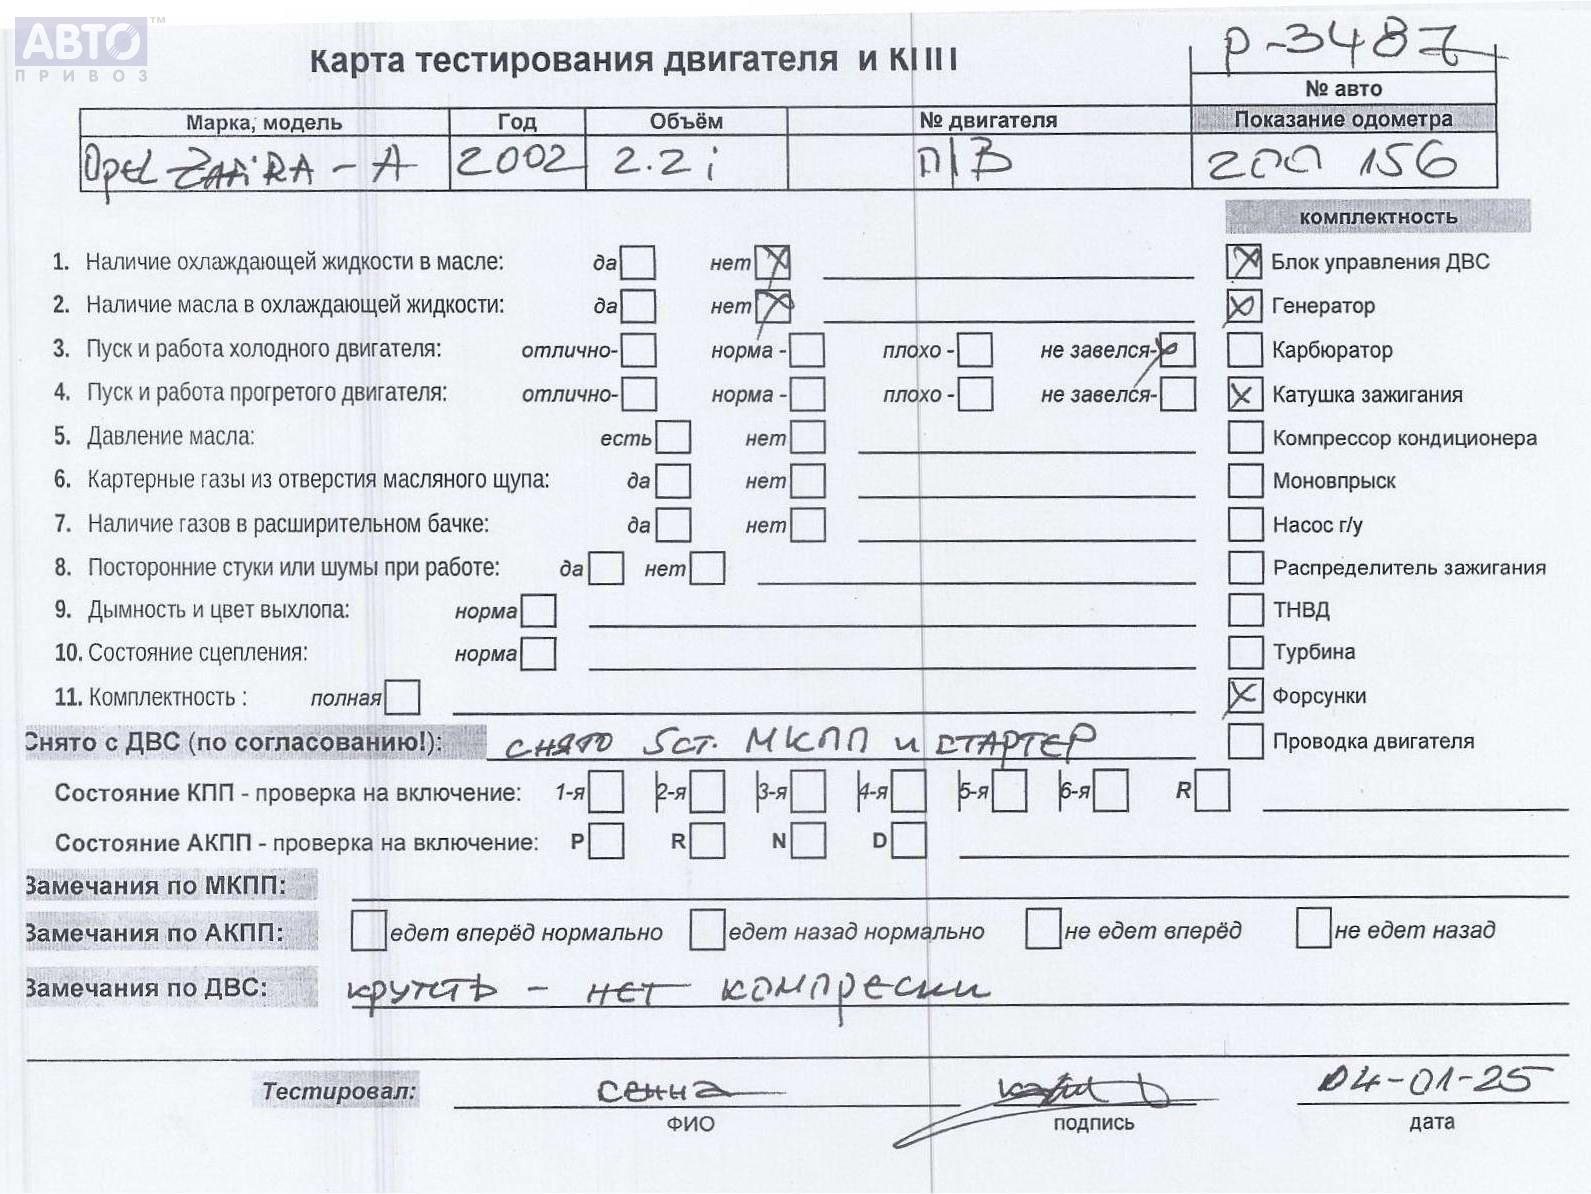 АВТО™
ПРИВОЗ
Карта тестирования двигателя и КПП
р-3487
№ авто
Марка, модель Год Объём № двигателя Показание одометра
Opel ZAFIRA - A 2002 2.2 i П/В 200 156
комплектность
1. Наличие охлаждающей жидкости в масле: да нет Блок управления ДВС
2. Наличие масла в охлаждающей жидкости: да нет Генератор
3. Пуск и работа холодного двигателя: отлично- норма - плохо - не завелся- Карбюратор
4. Пуск и работа прогретого двигателя: отлично- норма - плохо - не завелся- Катушка зажигания
5. Давление масла: есть нет Компрессор кондиционера
6. Картерные газы из отверстия масляного щупа: да нет Моновпрыск
7. Наличие газов в расширительном бачке: да нет Насос г/у
8. Посторонние стуки или шумы при работе: да нет Распределитель зажигания
9. Дымность и цвет выхлопа: норма ТНВД
10. Состояние сцепления: норма Турбина
11. Комплектность : полная Форсунки
Снято с ДВС (по согласованию!): снято 5ст. МКПП и стартер Проводка двигателя
Состояние КПП - проверка на включение: 1-я 2-я 3-я 4-я 5-я 6-я R
Состояние АКПП - проверка на включение: P R N D
Замечания по МКПП:
Замечания по АКПП: едет вперёд нормально едет назад нормально не едет вперёд не едет назад
Замечания по ДВС: - нет компресии
Тестировал: сенна 04-01-25
ФИО подпись дата